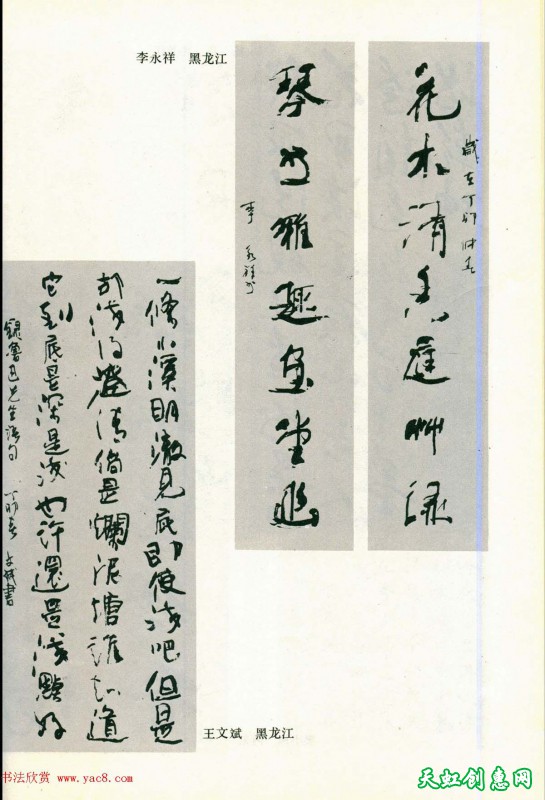 李永祥 黑龙江
花木清香庭草绿
岁在丁卯
琴书雅趣画堂幽
李永祥书
一条小溪明澈见底即使浅吧但是
却浅得澄清倘是烂泥塘谁知道
它到底是深是浅也许还是浅点好
录鲁迅先生语句 丁卯春 文斌书
王文斌 黑龙江
书法欣赏 www.yac8.com
天虹创意网